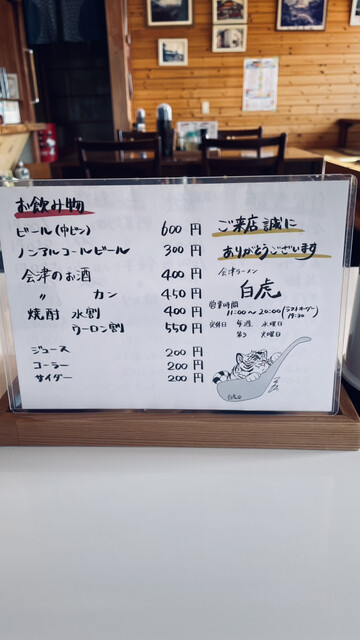 お飲み物
ビール(中ビン) 600円
ノンアルコールビール 300円
会津のお酒 400円
〃 カン 450円
焼酎 水割 400円
ウーロン割 550円
ジュース 200円
コーラー 200円
サイダー 200円
ご来店誠に
ありがとうございます
会津ラーメン
白虎
営業時間
11:00～20:00(ラストオーダー 19:30)
定休日 毎週 水曜日
第3 火曜日
白虎